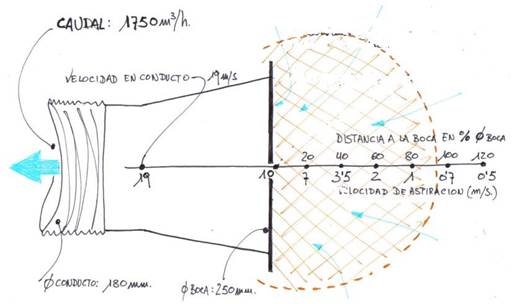 CAUDAL: 1750 m³/h.
VELOCIDAD EN CONDUCTO 19 m/s
DISTANCIA A LA BOCA EN % Ø BOCA
20 40 60 80 100 120
19 10 7 3'5 2 1 0'7 0'5
VELOCIDAD DE ASPIRACION (m/s.)
Ø CONDUCTO: 180 mm.
Ø BOCA: 250 mm.